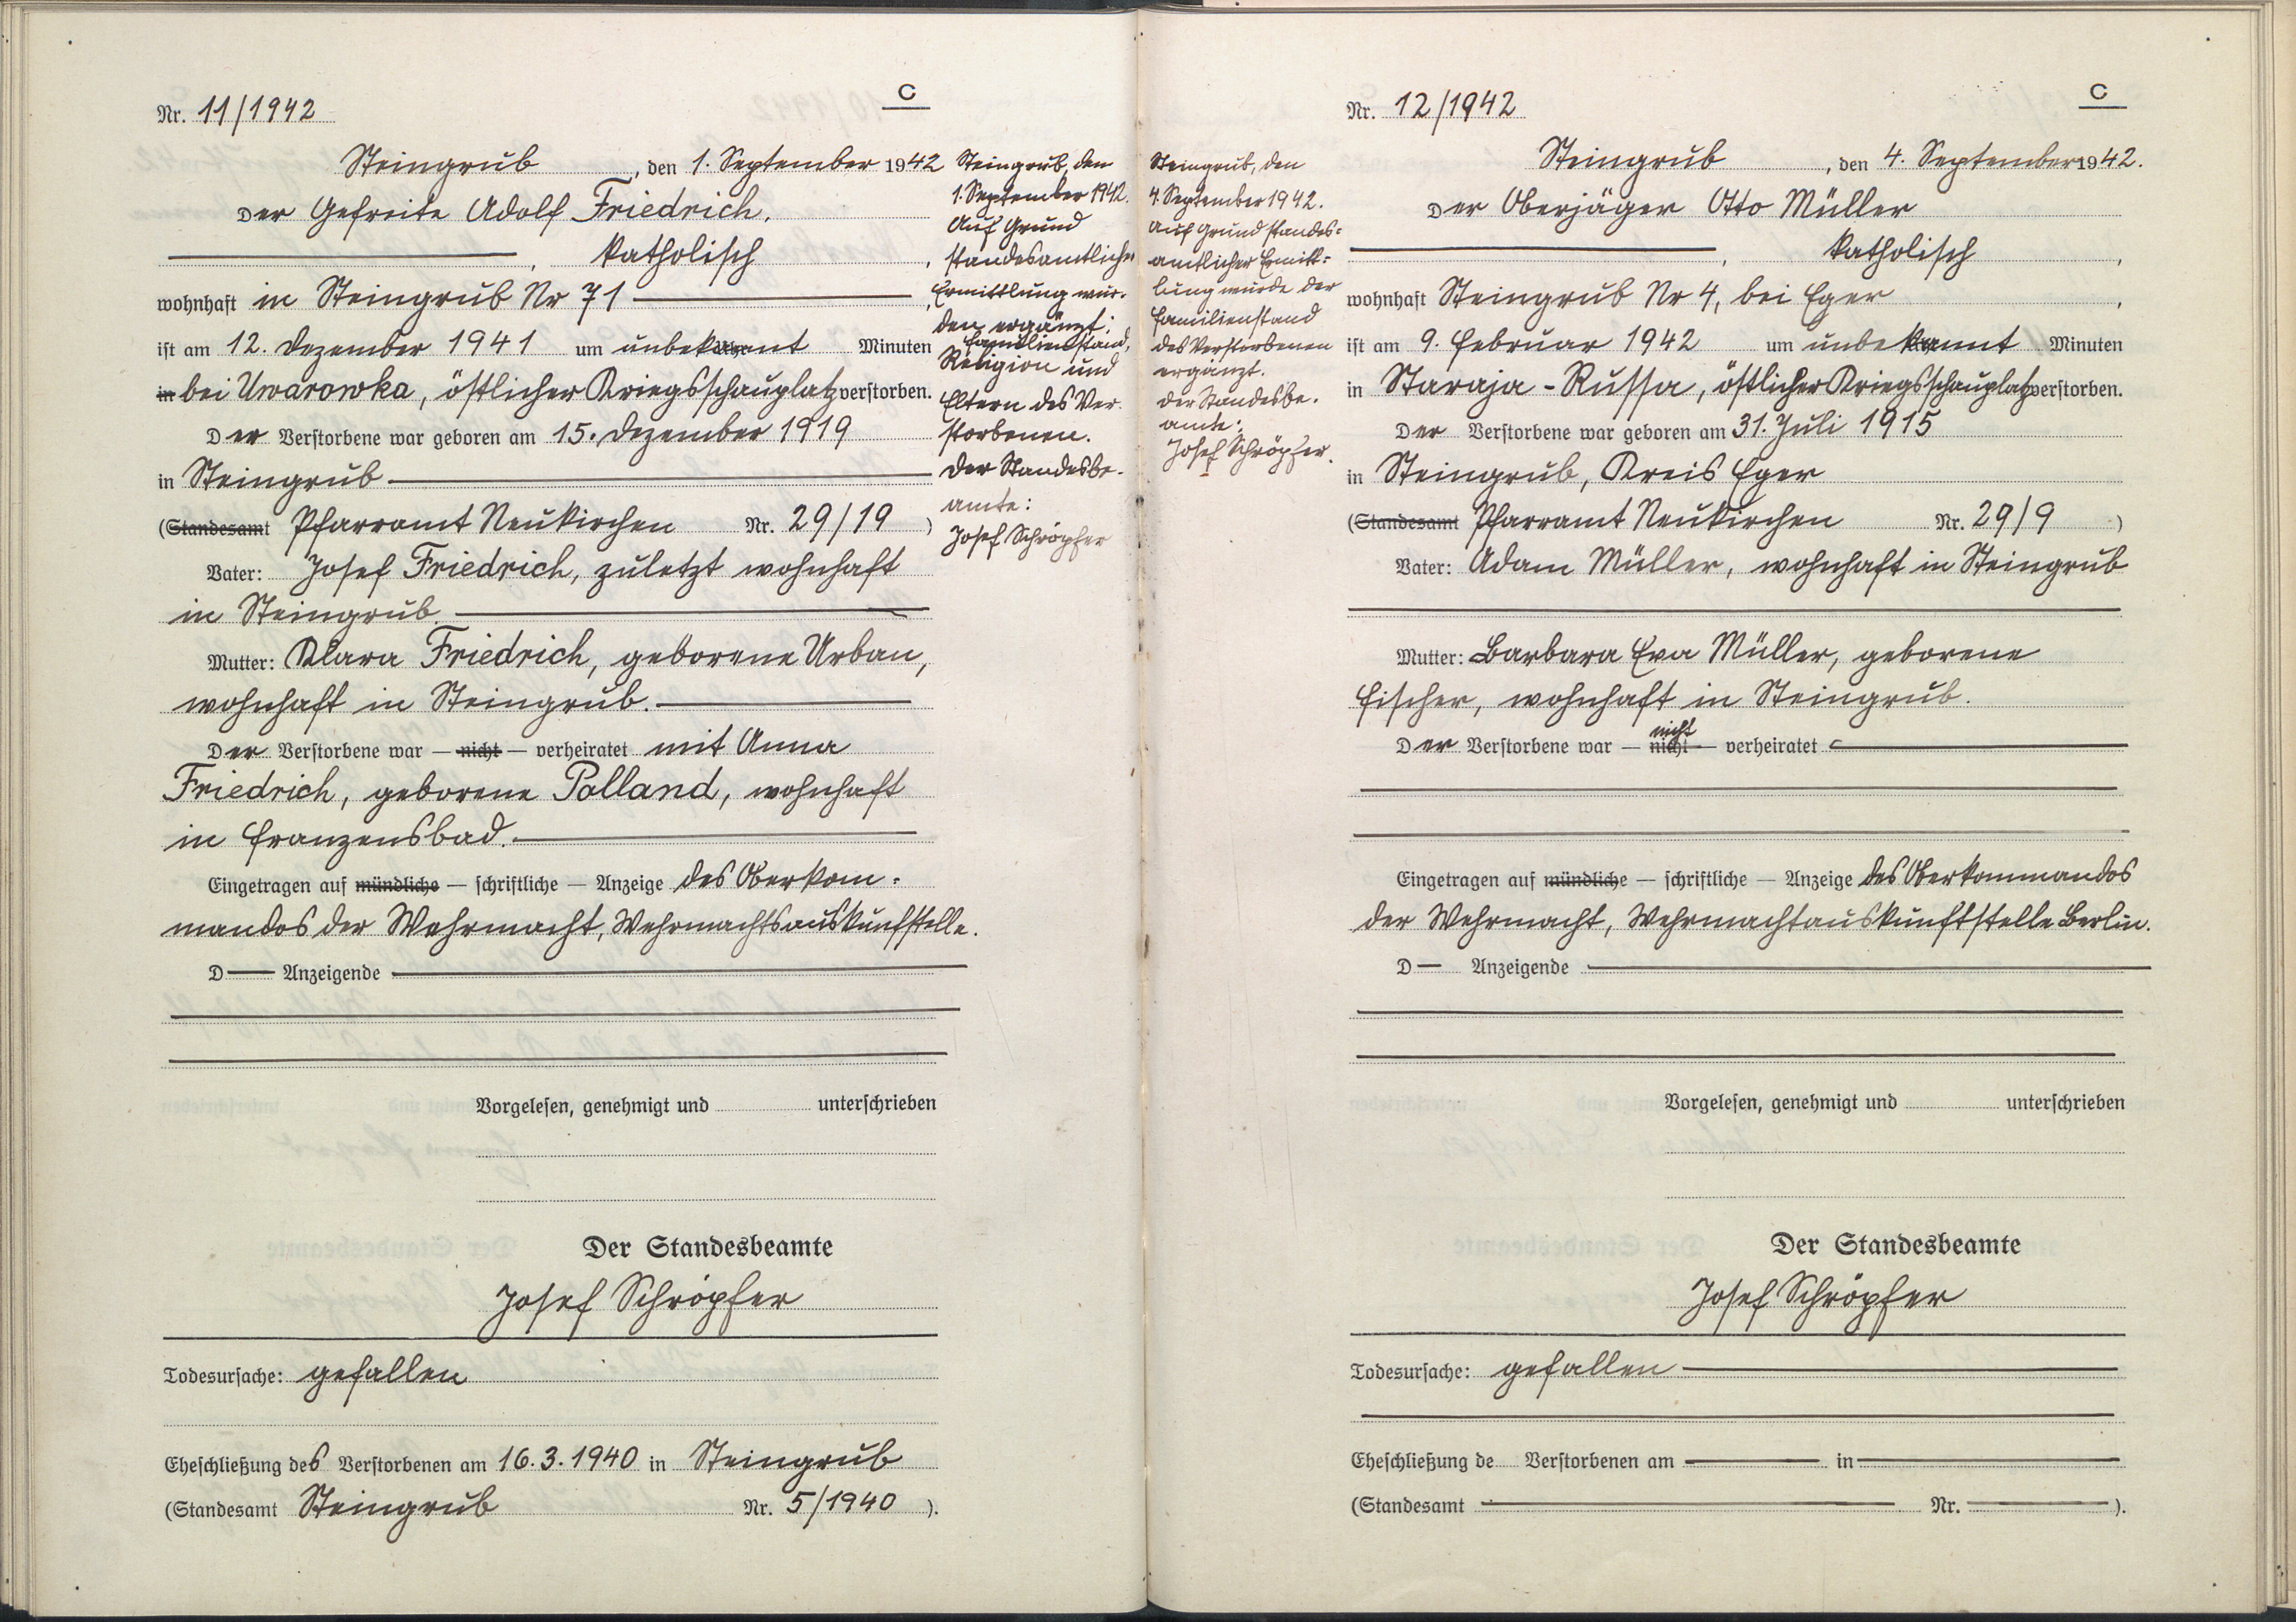 Nr. 11/1942
C
Steingrub, den 1. September 1942
Der Gefreite Adolf Friedrich,
, katholisch,
wohnhaft in Steingrub Nr 71
ist am 12. Dezember 1941 um unbekannt Minuten
in bei Uwarowka, östlicher Kriegsschauplatz verstorben.
Der Verstorbene war geboren am 15. Dezember 1919
in Steingrub
(Standesamt Pfarramt Neukirchen Nr. 29/19)
Vater: Josef Friedrich, zuletzt wohnhaft
in Steingrub.
Mutter: Klara Friedrich, geborene Urban,
wohnhaft in Steingrub.
Der Verstorbene war — nicht — verheiratet mit Anna
Friedrich, geborene Polland, wohnhaft
in Franzensbad.
Eingetragen auf mündliche — schriftliche — Anzeige des Oberkom-
mandos der Wehrmacht, Wehrmachtsauskunfstelle.
D Anzeigende
Vorgelesen, genehmigt und unterschrieben
Der Standesbeamte
Josef Schröpfer
Todesursache: gefallen
Eheschließung des Verstorbenen am 16.3.1940 in Steingrub
(Standesamt Steingrub Nr. 5/1940).
Steingrub, den
1. September 1942.
Auf Grund
standesamtlicher
Ermittlung wur-
den ergänzt:
Familienstand,
Religion und
Eltern des Ver-
storbenen.
Der Standesbe-
amte:
Josef Schröpfer
Steingrub, den
4. September 1942.
Auf Grund standes-
amtlicher Ermitt-
lung wurde der
Familienstand
des Verstorbenen
ergänzt.
Der Standesbe-
amte:
Josef Schröpfer.
Nr. 12/1942
C
Steingrub, den 4. September 1942.
Der Oberjäger Otto Müller
, katholisch,
wohnhaft Steingrub Nr 4, bei Eger,
ist am 9. Februar 1942 um unbekannt Minuten
in Staraja-Russa, östlicher Kriegsschauplatz verstorben.
Der Verstorbene war geboren am 31. Juli 1915
in Steingrub, Kreis Eger
(Standesamt Pfarramt Neukirchen Nr. 29/9)
Vater: Adam Müller, wohnhaft in Steingrub
Mutter: Barbara Eva Müller, geborene
Fischer, wohnhaft in Steingrub.
nicht
Der Verstorbene war — nicht — verheiratet
Eingetragen auf mündliche — schriftliche — Anzeige des Oberkommandos
der Wehrmacht, Wehrmachtauskunftstelle Berlin.
D Anzeigende
Vorgelesen, genehmigt und unterschrieben
Der Standesbeamte
Josef Schröpfer
Todesursache: gefallen
Eheschließung de Verstorbenen am in
(Standesamt Nr. ).